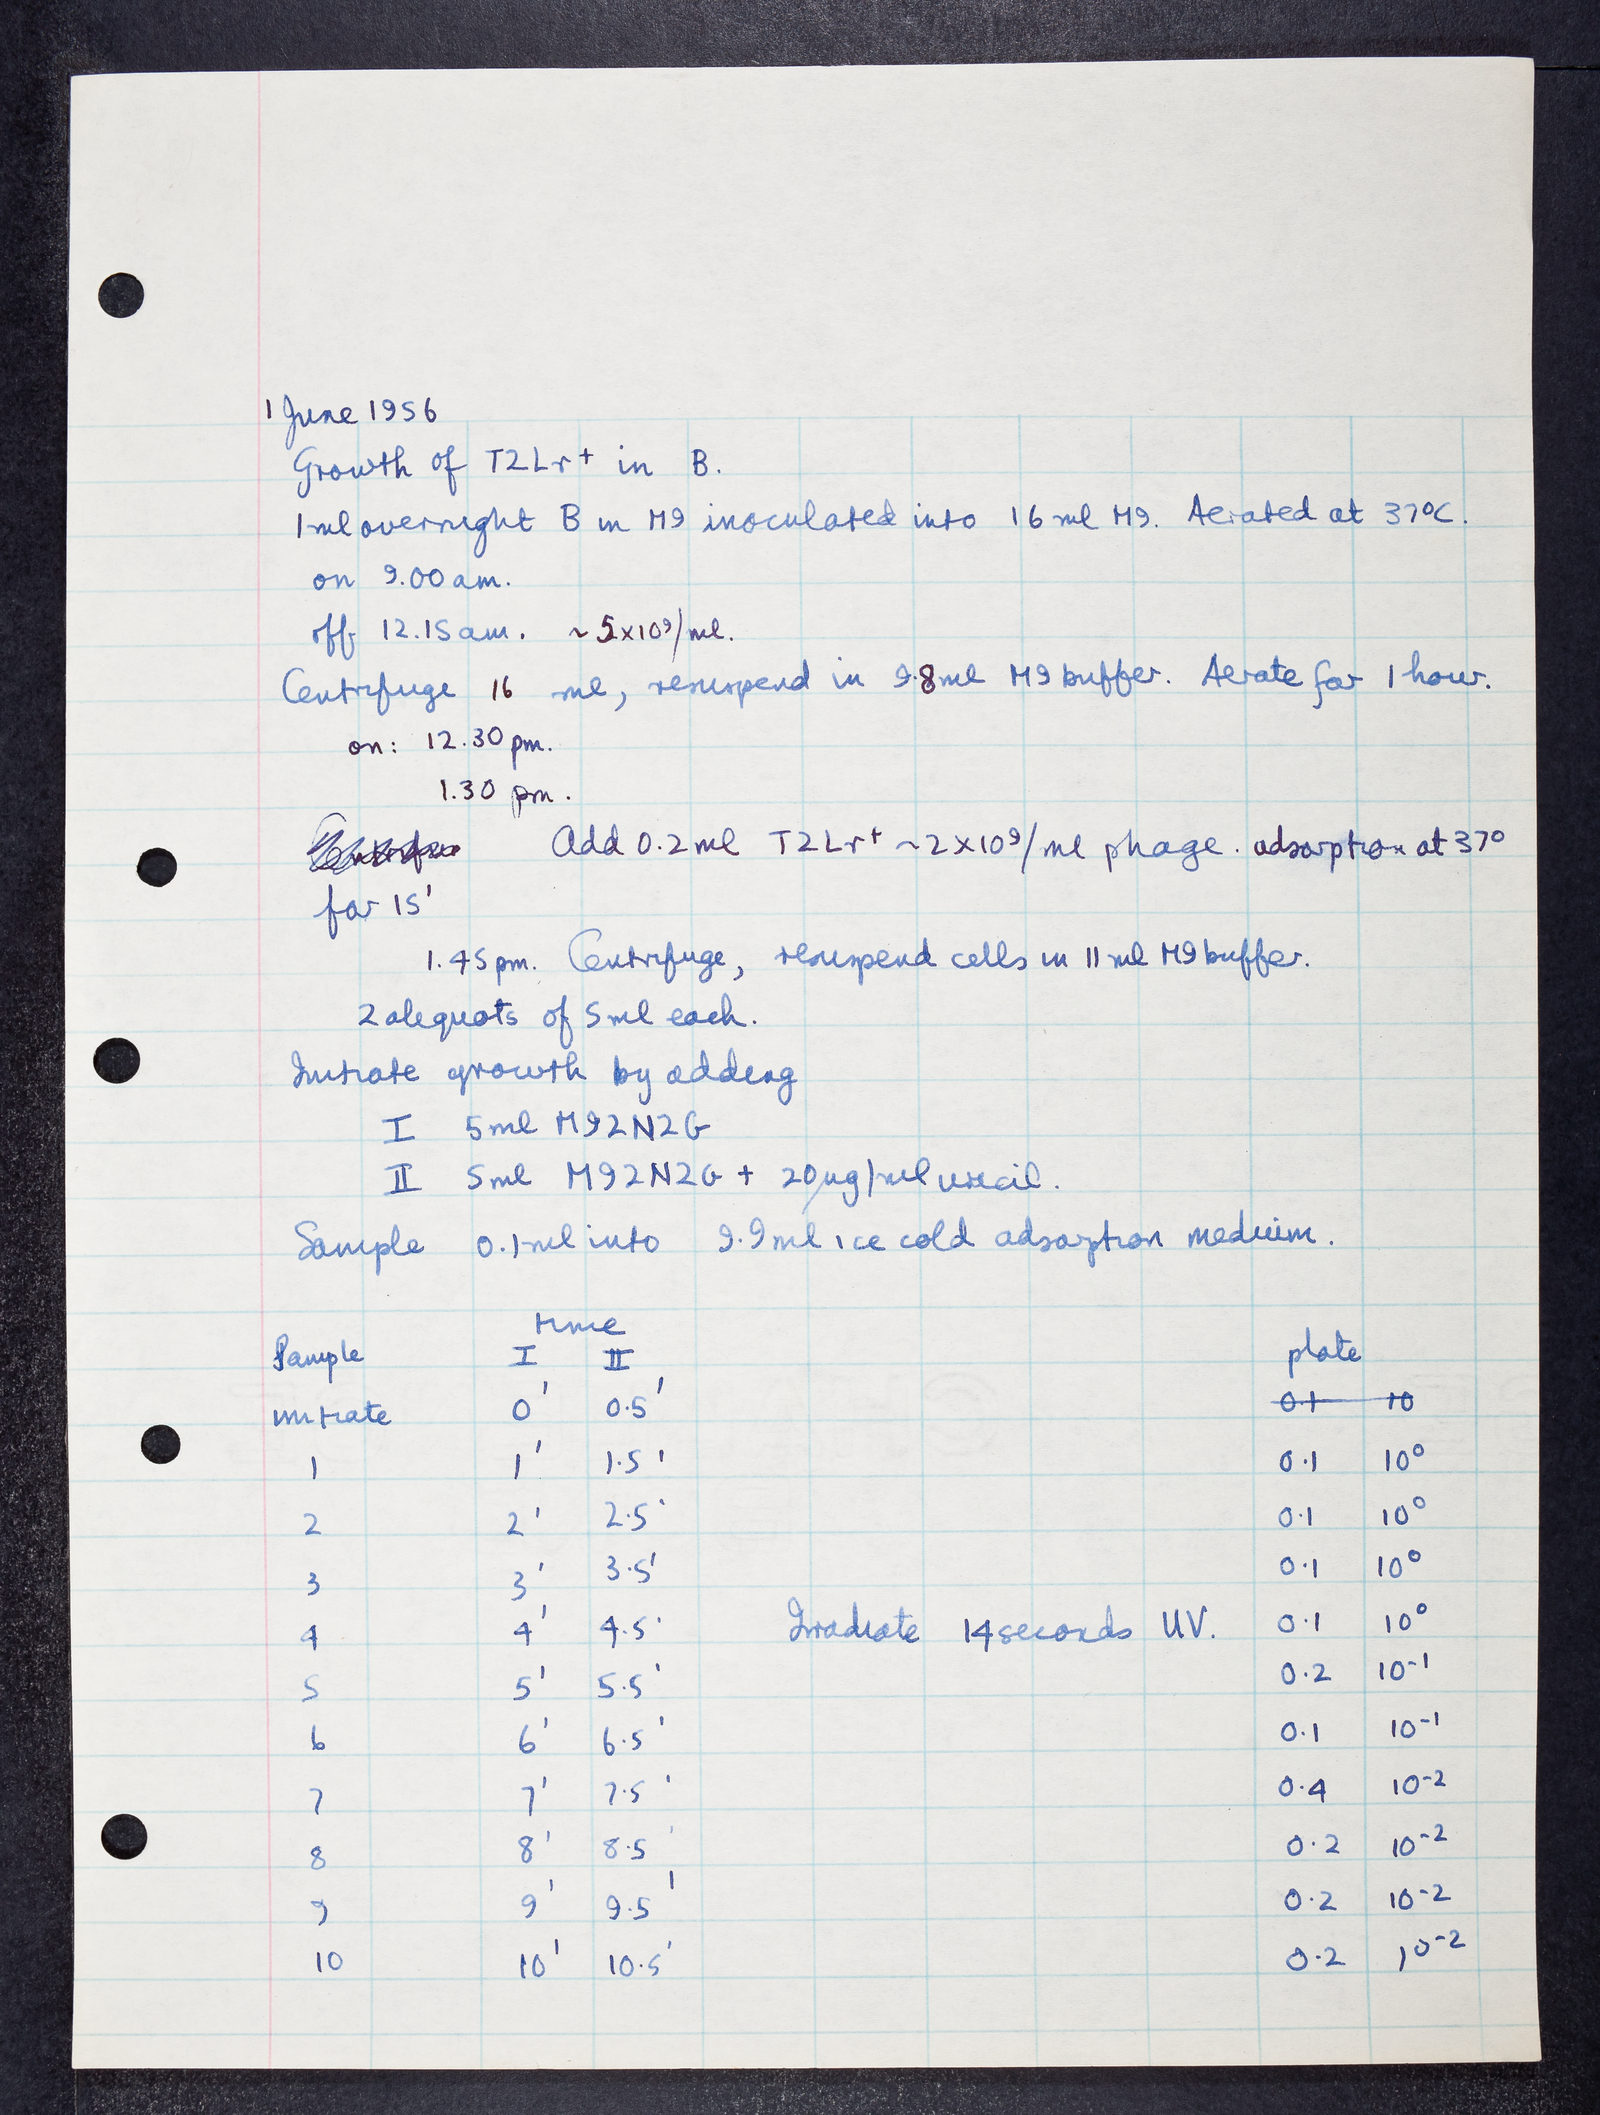 1 June 1956
Growth of T2Lr+ in B.
1ml overnight B in M9 inoculated into 16 ml M9. Aerated at 37°C.
on 9.00 am.
off 12.15 am. ~ 5x10⁹/ml.
Centrifuge 16 ml, resuspend in 9.8ml M9 buffer. Aerate for 1 hour.
on: 12.30 pm.
1.30 pm.
Add 0.2 ml T2Lr+ ~2x10⁹/ml phage. adsorption at 37°
for 15'
1.45 pm. Centrifuge, resuspend cells in 11 ml M9 buffer.
2 alequots of 5 ml each.
Initiate growth by adding
I 5 ml M92N2G
II 5 ml M92N2G + 20µg/ml uracil.
Sample 0.1ml into 9.9ml ice cold adsorption medium.
time
Sample I II plate
initiate 0' 0.5' 0.1 10
1 1' 1.5' 0.1 10⁰
2 2' 2.5' 0.1 10⁰
3 3' 3.5' 0.1 10⁰
4 4' 4.5' Irradiate 14 seconds UV. 0.1 10⁰
5 5' 5.5' 0.2 10⁻¹
6 6' 6.5' 0.1 10⁻¹
7 7' 7.5' 0.4 10⁻²
8 8' 8.5' 0.2 10⁻²
9 9' 9.5' 0.2 10⁻²
10 10' 10.5' 0.2 10⁻²